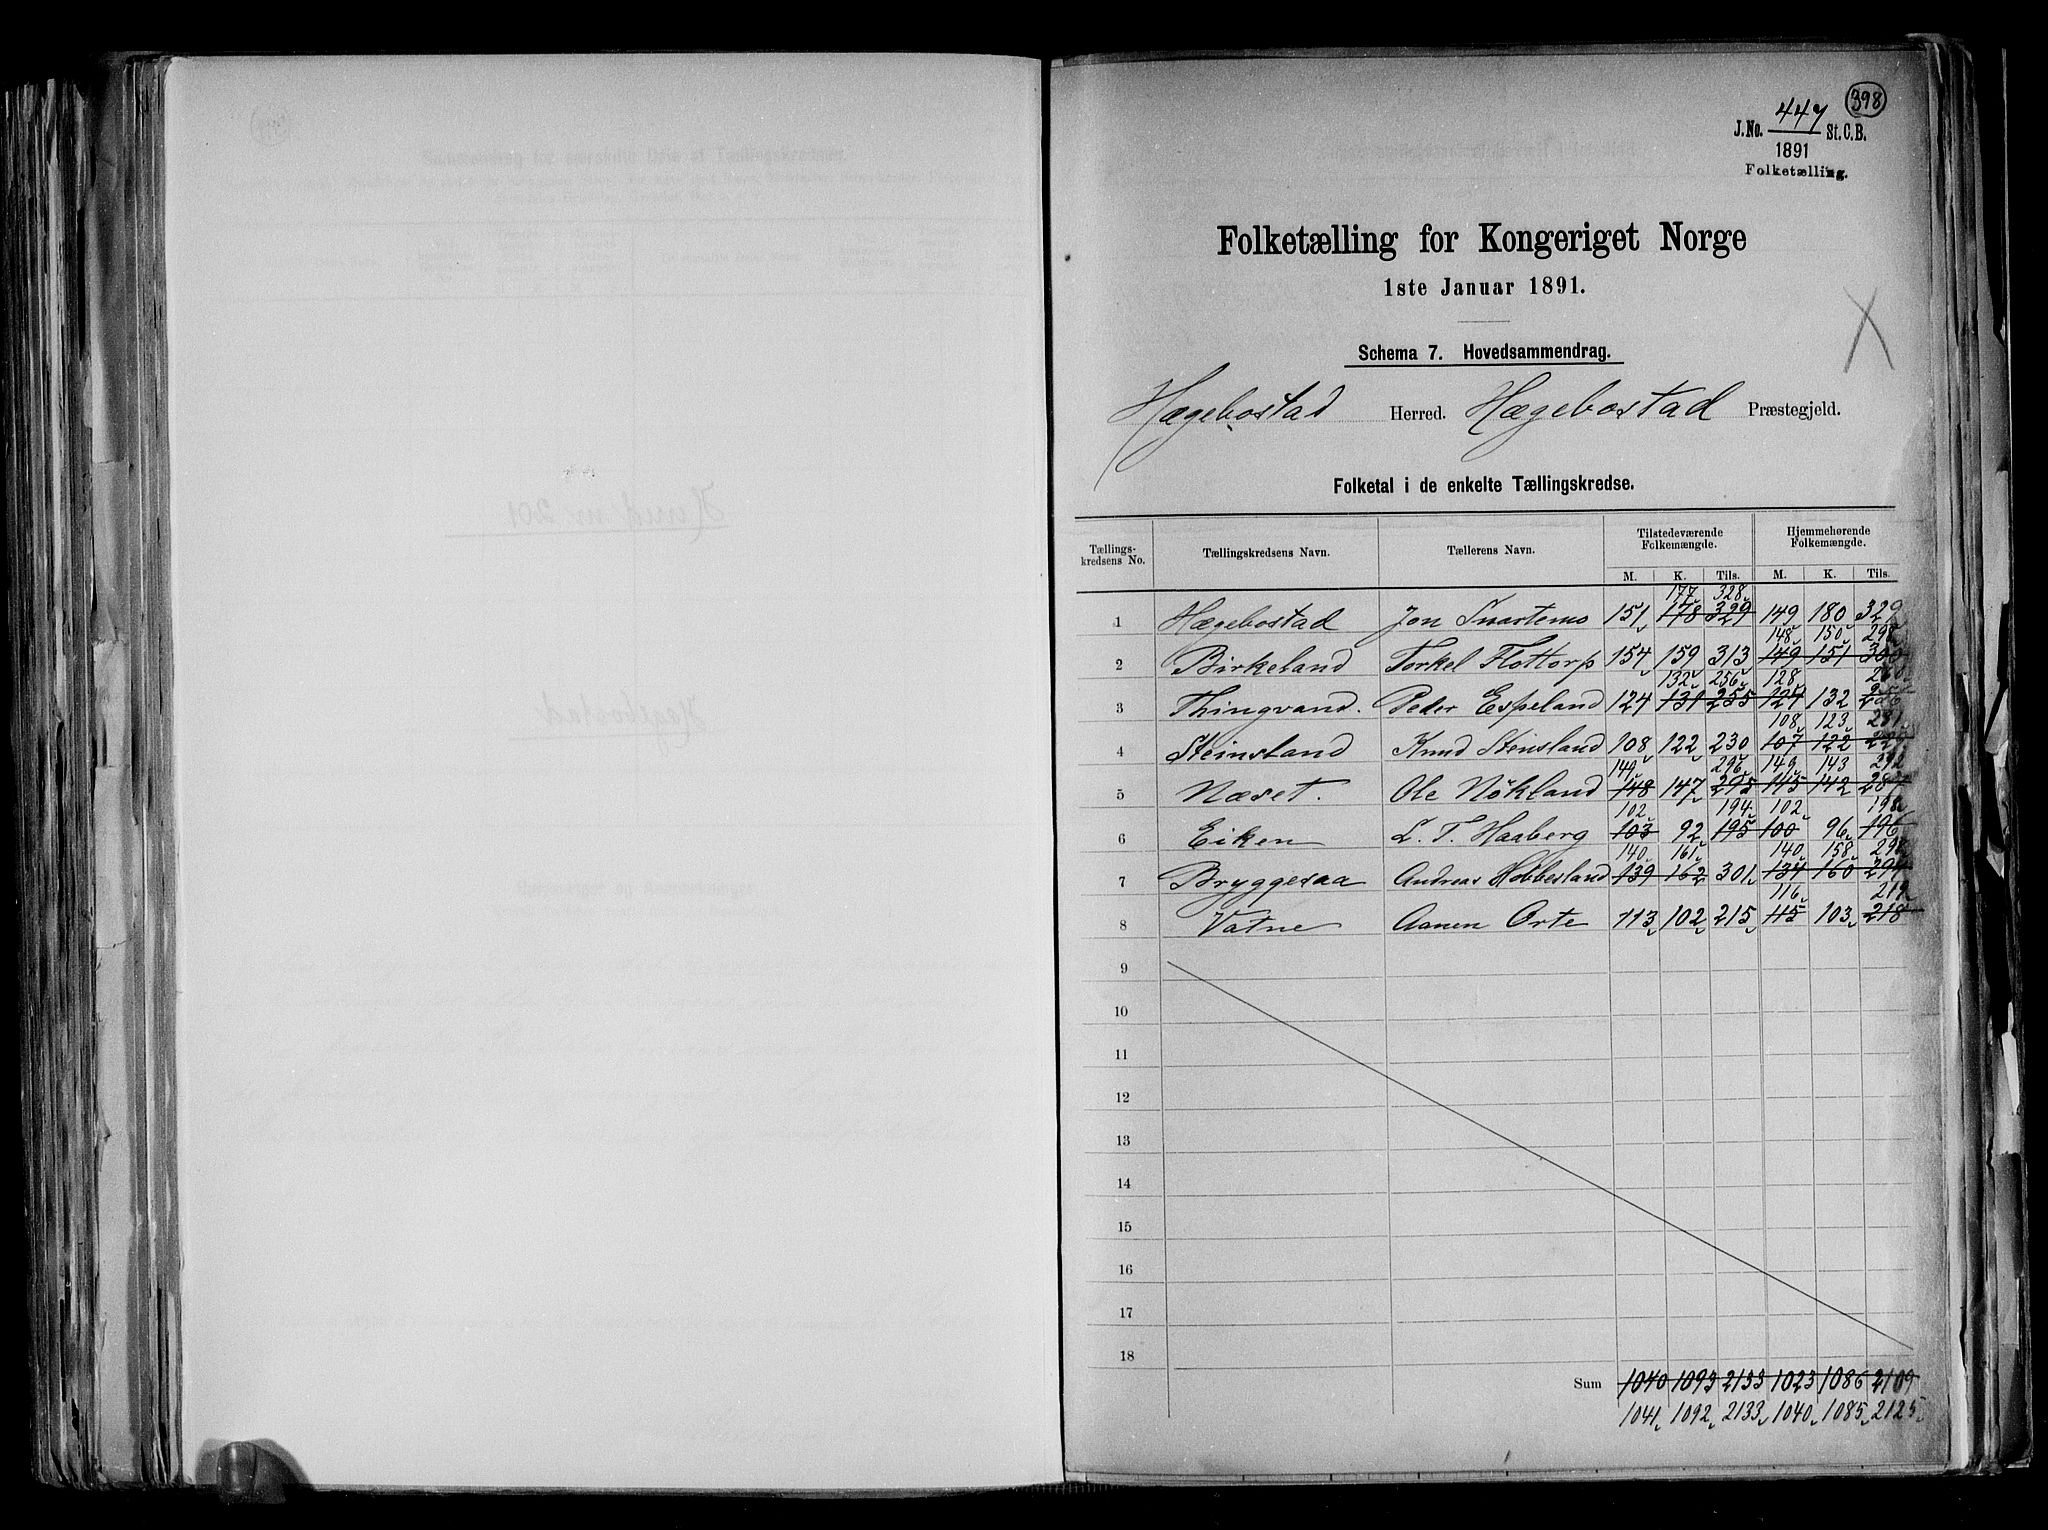 398
J.No. 447 St.C.B.
1891
Folketælling.
Folketælling for Kongeriget Norge
1ste Januar 1891.
Schema 7. Hovedsammendrag.
Hægebostad Herred. Hægebostad Præstegjeld.
Folketal i de enkelte Tællingskredse.
Tællings-kredsens No. Tællingskredsens Navn. Tællerens Navn. Tilstedeværende Folkemængde. Hjemmehørende Folkemængde.
M. K. Tils. M. K. Tils.
177 328
1 Hægebostad Jon Snartemo 151 178 329 149 180 329
148 150 298
2 Birkeland Torkel Flottorp 154 159 313 149 151 300
132 256 128 260
3 Thingvand. Peder Espeland 124 131 255 124 132 256
108 123 231
4 Steinsland Knud Stensland 108 122 230 107 122 229
149 296 149 143 292
5 Næset. Ole Nökland 148 147 295 145 142 287
102 194 102 198
6 Eiken L. T. Haaberg 103 92 195 100 96 196
140 161 140 158 298
7 Bryggesaa Andreas Hobbesland 139 162 301 134 160 294
116 219
8 Vatne Aanen Orte 113 102 215 115 103 218
9
10
11
12
13
14
15
16
17
18
Sum 1040 1093 2133 1023 1086 2109
1041 1092 2133 1040 1085 2125
Herred nr 201
Hægebostad